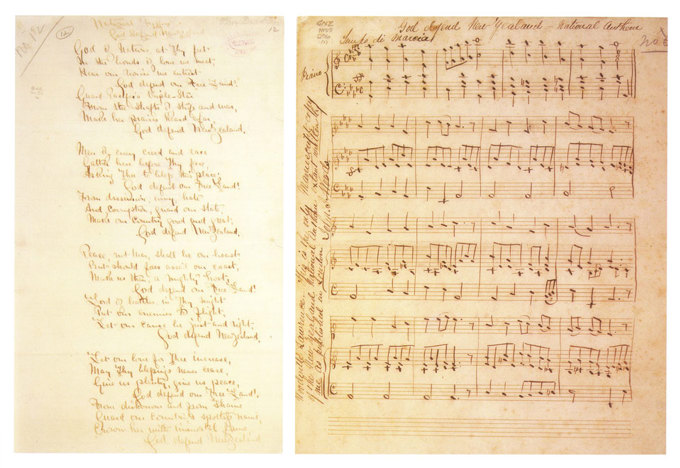 National Hymn
God Defend New Zealand
12
God of Nations at Thy feet
In the bonds of love we meet,
Hear our Voices we entreat
God defend our Free Land.
Guard Pacific's triple Star
From the shafts of strife and war,
Make her praises heard afar,
God defend New Zealand.
Men of every creed and race
Gather here before Thy face
Asking Thee to bless this place;
God defend our Free Land.
From dissension, envy, hate
And corruption, guard our state,
Make our Country good and great,
God defend New Zealand.
Peace, not War, shall be our boast
But should foes assail our coast,
Make us then a mighty host,
God defend our Free Land.
Lord of battles in Thy might
Put our enemies to flight,
Let our cause be just and right,
God defend New Zealand.
Let our love for Thee increase,
May Thy blessings never cease,
Give us plenty, give us peace,
God defend our Free Land.
From dishonour and from shame
Guard our Country's spotless name,
Crown her with immortal fame
God defend New Zealand
God defend New Zealand — National Anthem
Piano